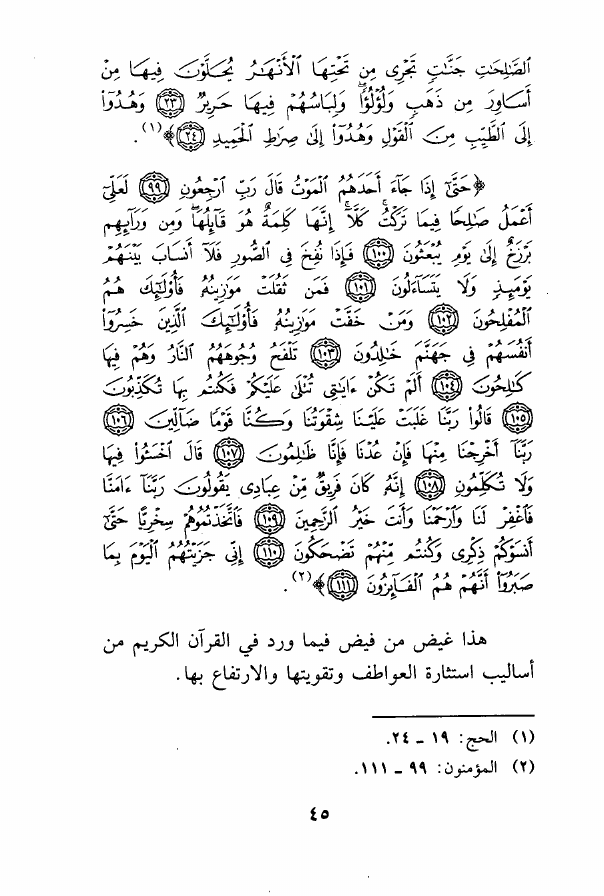 الصَّٰلِحَٰتِ جَنَّٰتٍ تَجْرِى مِن تَحْتِهَا ٱلْأَنْهَٰرُ يُحَلَّوْنَ فِيهَا مِنْ
أَسَاوِرَ مِن ذَهَبٍ وَلُؤْلُؤًا وَلِبَاسُهُمْ فِيهَا حَرِيرٌ ﴿٢٣﴾ وَهُدُوٓا۟
إِلَى ٱلطَّيِّبِ مِنَ ٱلْقَوْلِ وَهُدُوٓا۟ إِلَىٰ صِرَٰطِ ٱلْحَمِيدِ ﴿٢٤﴾﴾(١).
﴿حَتَّىٰٓ إِذَا جَآءَ أَحَدَهُمُ ٱلْمَوْتُ قَالَ رَبِّ ٱرْجِعُونِ ﴿٩٩﴾ لَعَلِّىٓ
أَعْمَلُ صَٰلِحًا فِيمَا تَرَكْتُ ۚ كَلَّآ ۚ إِنَّهَا كَلِمَةٌ هُوَ قَآئِلُهَا ۖ وَمِن وَرَآئِهِم
بَرْزَخٌ إِلَىٰ يَوْمِ يُبْعَثُونَ ﴿١٠٠﴾ فَإِذَا نُفِخَ فِى ٱلصُّورِ فَلَآ أَنسَابَ بَيْنَهُمْ
يَوْمَئِذٍ وَلَا يَتَسَآءَلُونَ ﴿١٠١﴾ فَمَن ثَقُلَتْ مَوَٰزِينُهُۥ فَأُو۟لَٰٓئِكَ هُمُ
ٱلْمُفْلِحُونَ ﴿١٠٢﴾ وَمَنْ خَفَّتْ مَوَٰزِينُهُۥ فَأُو۟لَٰٓئِكَ ٱلَّذِينَ خَسِرُوٓا۟
أَنفُسَهُمْ فِى جَهَنَّمَ خَٰلِدُونَ ﴿١٠٣﴾ تَلْفَحُ وُجُوهَهُمُ ٱلنَّارُ وَهُمْ فِيهَا
كَٰلِحُونَ ﴿١٠٤﴾ أَلَمْ تَكُنْ ءَايَٰتِى تُتْلَىٰ عَلَيْكُمْ فَكُنتُم بِهَا تُكَذِّبُونَ
﴿١٠٥﴾ قَالُوا۟ رَبَّنَا غَلَبَتْ عَلَيْنَا شِقْوَتُنَا وَكُنَّا قَوْمًا ضَآلِّينَ ﴿١٠٦﴾
رَبَّنَآ أَخْرِجْنَا مِنْهَا فَإِنْ عُدْنَا فَإِنَّا ظَٰلِمُونَ ﴿١٠٧﴾ قَالَ ٱخْسَـُٔوا۟ فِيهَا
وَلَا تُكَلِّمُونِ ﴿١٠٨﴾ إِنَّهُۥ كَانَ فَرِيقٌ مِّنْ عِبَادِى يَقُولُونَ رَبَّنَآ ءَامَنَّا
فَٱغْفِرْ لَنَا وَٱرْحَمْنَا وَأَنتَ خَيْرُ ٱلرَّٰحِمِينَ ﴿١٠٩﴾ فَٱتَّخَذْتُمُوهُمْ سِخْرِيًّا حَتَّىٰٓ
أَنسَوْكُمْ ذِكْرِى وَكُنتُم مِّنْهُمْ تَضْحَكُونَ ﴿١١٠﴾ إِنِّى جَزَيْتُهُمُ ٱلْيَوْمَ بِمَا
صَبَرُوٓا۟ أَنَّهُمْ هُمُ ٱلْفَآئِزُونَ ﴿١١١﴾﴾(٢).
هذا غيض من فيض فيما ورد في القرآن الكريم من
أساليب استثارة العواطف وتقويتها والارتفاع بها.
(١) الحج: ١٩ ـ ٢٤.
(٢) المؤمنون: ٩٩ ـ ١١١.
٤٥